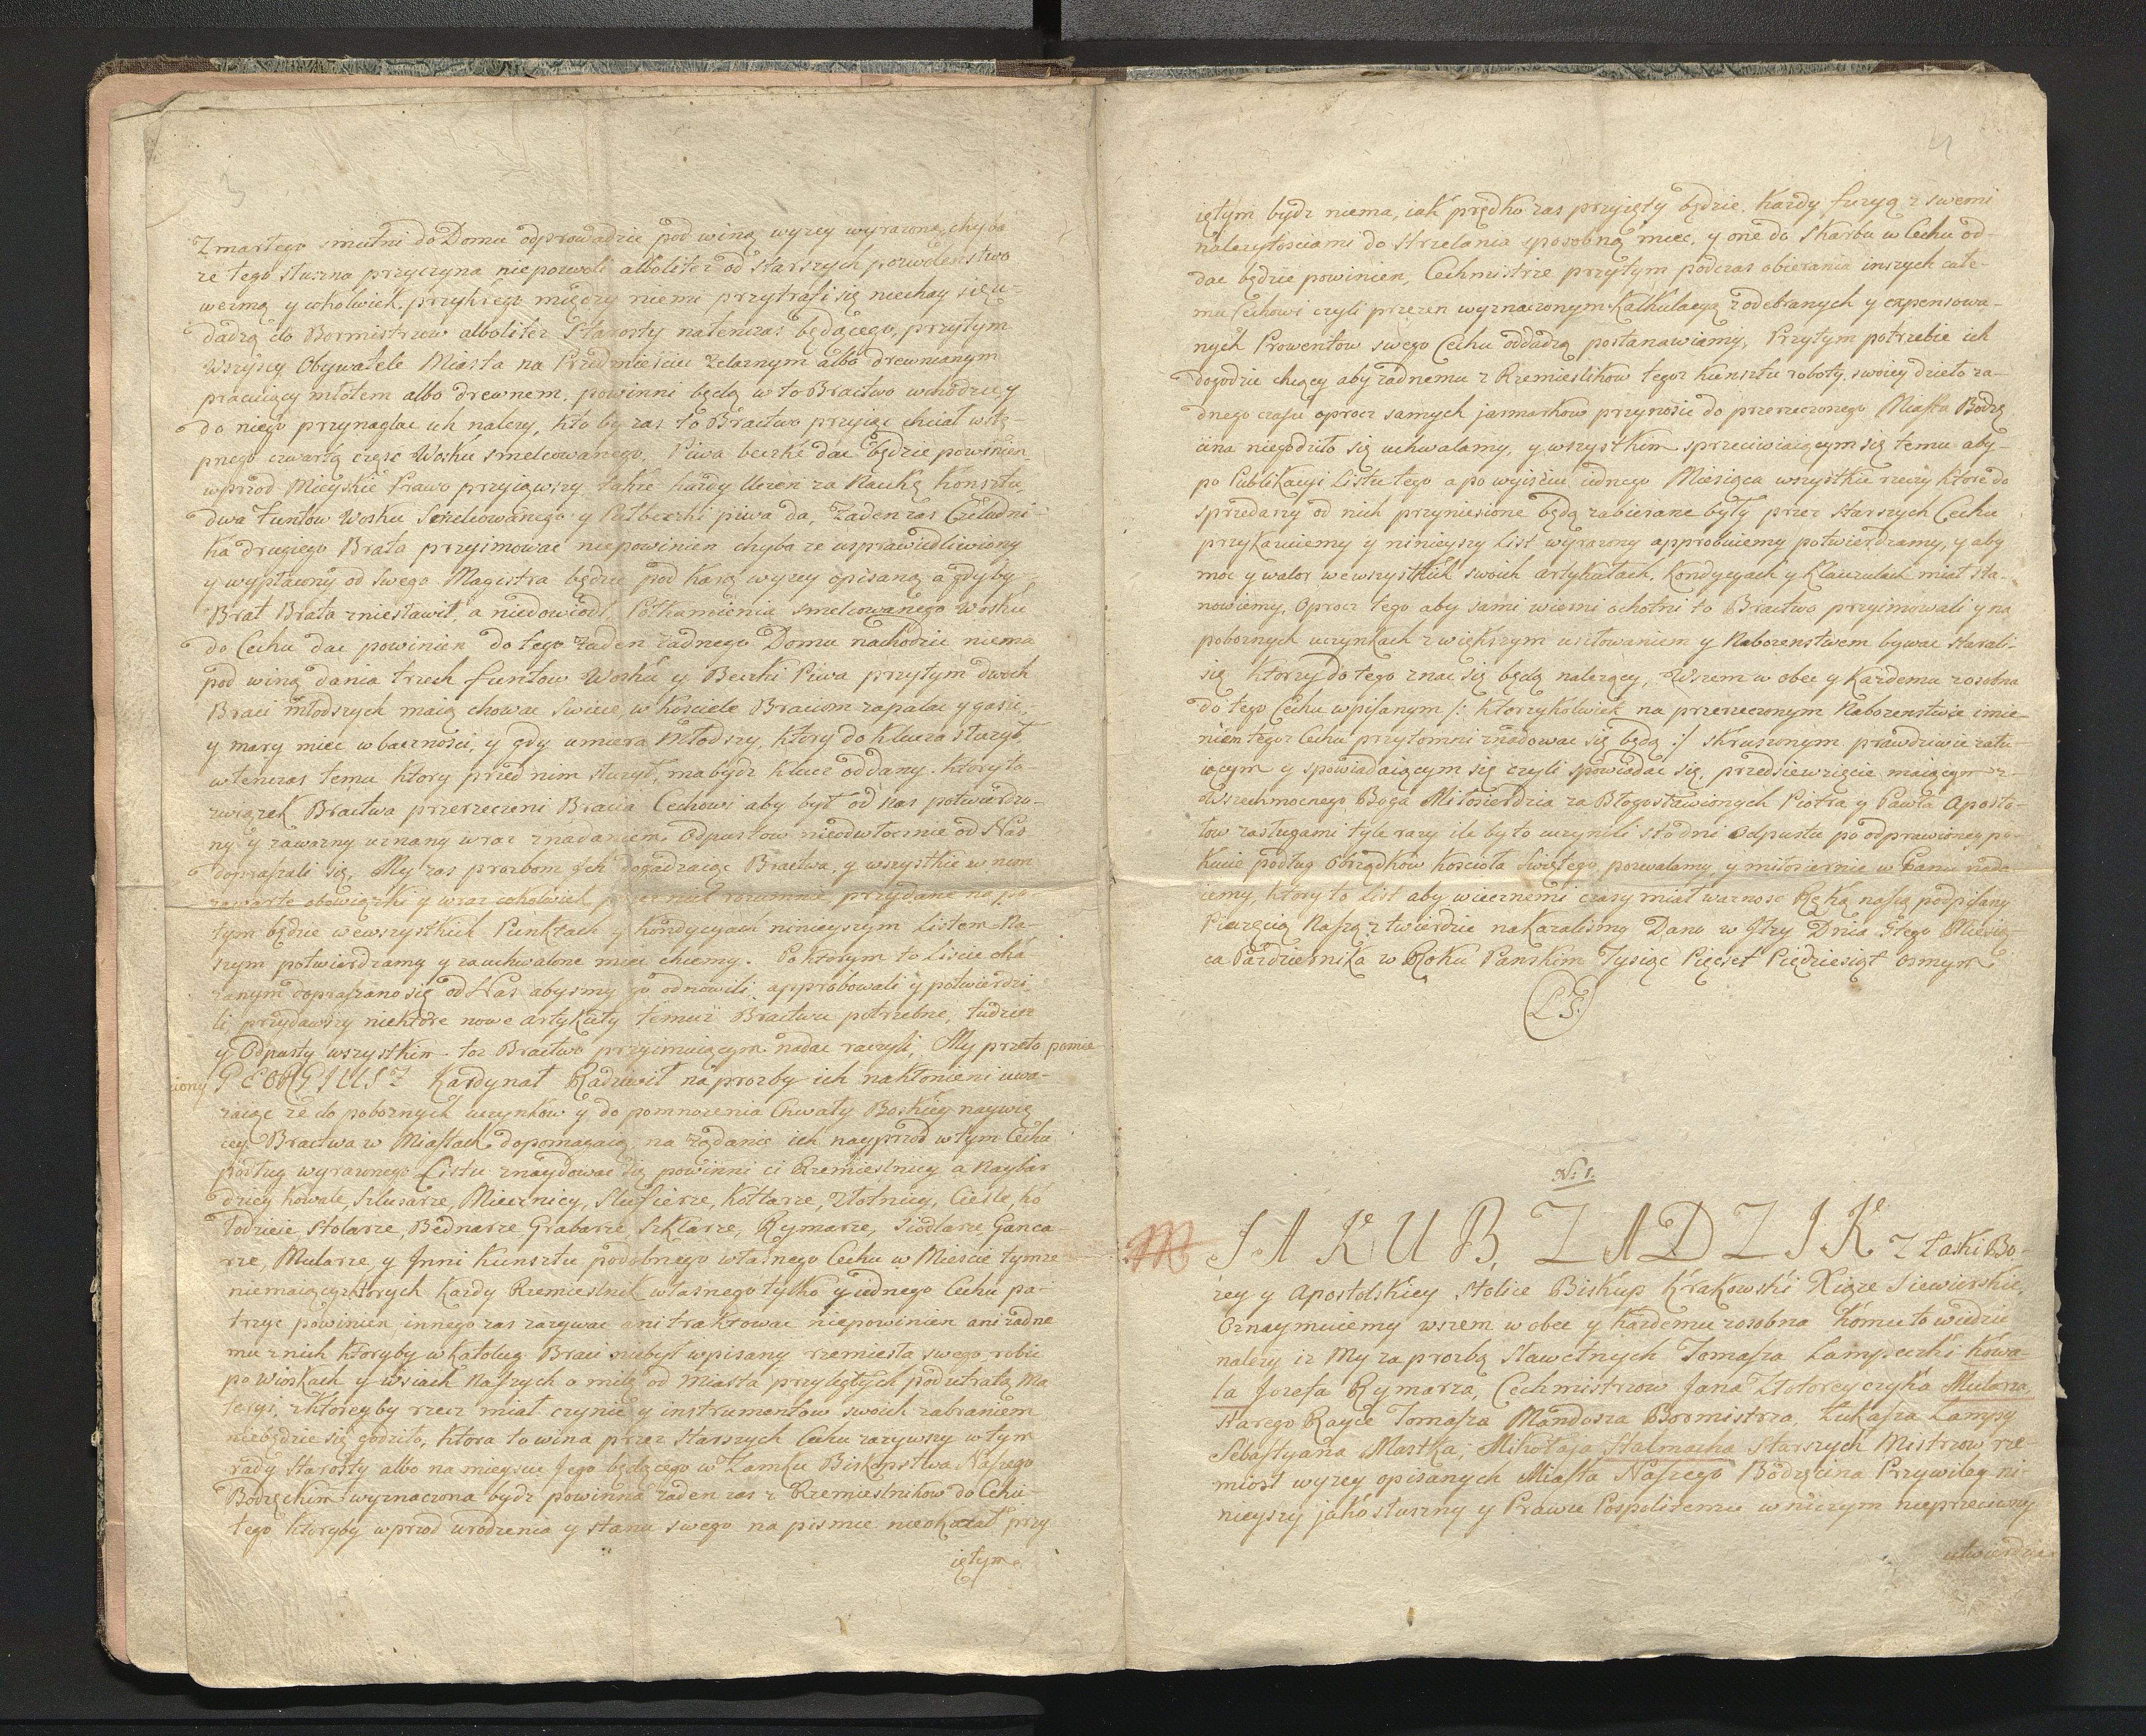 3
Zmarłego smutni do Domu odprowadzic pod winą wyzey wyrazoną, chyba
ze tego słuszna przyczyna niepozwoli alboliteż od starszych pozwolenstwo
wezmą y cokolwiek przykrego między niemi przytrafi się niechay się u-
dadzą do Bormistrzow alboliter Starosty natenczas będącego, przytym
Wszyscy Obywatele Miasta na Przedmieściu żelaznym albo drewnianym
pracuiący młotem albo drewnem, powinni będą w to Bractwo wchodzic y
do niego przynaglac ich nalezy, kto by zas to Bractwo przyiąc chciał wstę-
pnego czwartą częsc Wosku smelcowanego, Piwa beczkę dac będzie powinien
wprzod Mieyskie Prawo przyiąwszy, takze kazdy Uczen za Naukę Konsztu,
dwa funtow Wosku Smelcowanego y Pułbeczki piwa da, Zaden zas Czeladni-
ka drugiego Brata przyimowac niepowinien chyba ze usprawiedliwiony
y wypłacony od swego Magistra będzie pod karą wyzey opisaną a gdyby
Brat Brata zniesławił, a niedowiodł, Połkamienia smelcowanego Wosku
do Cechu dac powinien do tego żaden żadnego Domu nachodzic niema
pod winą dania trzech funtow Wosku y Beczki Piwa przytym dwoch
Braci młodszych maią chowac Swice, w kosciele Braciom zapalac y gasic,
y mary miec w bacznosci, y gdy umiera Młodszy, ktory do Klucza słuzył,
wtenczas temu ktory przed nim słuzył, ma bydz klucz oddany. ktory to
związek Bractwa przerzeczeni Bracia Cechowi aby był od nas potwierdzo-
ny y zawazny uznany wraz z nadaniem Odpustow nieodwłocznie od Nas
dopraszali się, My zas prozbom Ich dogadzaiąc Bractwa, y wszystkie w nim
zawarte obowiązki y wraz cokolwiek przez nich rozumnie przydane na po-
tym będzie wewszystkich Punktach y kondycyach ninieyszym Listem Na-
szym potwierdzamy y zauchwalone miec chcemy. Po ktorym to Liscie oka
zanym dopraszano się od Nas abysmy go odnowili approbowali y potwierdzi-
li przydawszy niektore nowe artykuły temuz Bractwu potrzebne, tudziez
y Odpusty wszystkim toz Bractwo przyimuiącym nadac raczyli, My przeto pomie-
niony GEORGIUSZ Kardynał Radziwił na prozby ich nakłonieni uwa-
zaiąc że do poboznych uczynkow y do pomnozenia Chwały Boskiey naywię
cey Bractwa w Miastach dopomagaią, na żądanie ich nayprzod w tym Cechu
podług wyrazonego Listu znaydowac się powinni ci Rzemieslnicy a naybar
dziey kowale, szlusarze, Miecznicy, Slufierze, kotlarze, złotnicy, Ciesle, ko
łodzieie, stolarze, Bednarze, Grabarze Szklarze, Rymarze, siodlarze, Ganca-
rze, Mularze, y Inni Kunsztu podobnego własnego Cechu w Miescie tymze
niemaiący, ktorych kazdy Rzemieslnik własnego tylko y iednego Cechu pa-
trzyc powinien, innego zas zazywac ani traktowac niepowinien ani żadne
mu z nich ktoryby w katolog Braci niebył wpisany rzemiesła swego robic
po wioskach y wsiach Naszych o milę od miasta przyległych pod utratą ma
teryi, z ktoreyby rzecz miał czynic y instrumentow swoich zabraniem
niebędzie się godziło, ktora to wina przez starszych Cechu zazywszy w tym
rady Starosty albo na mieyscu Jego będącego w Zamku Biskupstwa Naszego
Bodzęckim wyznaczona bydz powinna żaden zas z Rzemieslnikow do Cechu
tego ktoryby wprzod urodzenia y stanu swego na pismie nieokazał przy
iętym.
4
iętym bydz niema, iak prędko zas przyięty będzie. Kazdy fuzyą z swemi
nalezytosciami do strzelania sposobną miec, y one do skarbu w Cechu od-
dac będzie powinien, Cechmistrze przytym podczas obierania inszych całe-
mu Cechowi czyli przezen wyznaczonym Kalkulacyą z odebranych y expensowa-
nych Prowentow swego Cechu oddadzą postanawiamy, Przytym potrzebie ich
dogodzic chcący aby żadnemu z Rzemieslikow tegoz kunsztu roboty swoiey dzieło ża-
dnego czasu oprocz samych jarmarkow przynosic do przerzeczonego Miasta Bodzę
cina niegodziło się uchwalamy, y wszystkim sprzeciwiaiącym się temu aby-
po Publikacyi Listu tego a po wyisciu iednego Miesiąca wszystkie rzeczy ktore do
sprzedazy od nich przyniesione będą zabierane były przez starszych Cechu
przykazuiemy y ninieyszy List wyrazony approbuiemy potwierdzamy, y aby
moc y walor wewszystkich swoich artykułach, kondycyach y klauzulach miał sta-
nowiemy, oprocz tego aby sami wierni ochotni to Bractwo przyimowali y na
poboznych uczynkach z większym usiłowaniem y Nabozenstwem bywac starali-
się ktorzy do tego znac się będą nalezący, Wszem w obec y Kazdemu zosobna
do tego Cechu wpisanym /: ktorzykolwiek na przerzeczonym Nabozenstwie imie-
niem tegoz Cechu przytomni znadowac się będą :/ skruszonym prawdziwie zału-
iącym y spowiadaiącym się czyli spowiadac się, przedsiewzięcie maiącym z-
Wszechmocnego Boga Miłosierdzia za Błogosławionych Piotra y Pawła Aposto-
łow zasługami tyle razy ile by to uczynili sto dni Odpustu po odprawioney po-
kucie podług Obrządkow kościoła Swiętego, pozwalamy, y miłosiernie w Panu nada-
iemy, ktory to List aby wiecznemi czasy miał waznosc Ręką naszą podpisany
Pieczęcią Naszą ztwierdzic nakazalismy Dano w Iłzy Dnia 5tego Miesią-
ca Pazdziernika w Roku Panskim Tysiąc Pięcset Pięcdziesiąt osmym
L.S.
N: 1.
M JAKUB, ZADZIK z Łaski Bo-
żey y Apostolskiey stolice Biskup krakowski Xiąze Siewierskie,
Oznaymuiemy wszem w obec y kazdemu zosobna komu to wiedziec
nalezy iz My za prozbą sławetnych Tomasza Lampeczki kowa-
la Jozefa Rymarza, Cechmistrzow Jana Złotoręczyka Mularza
starego Rayce Tomasza Mandosza Bormistrza, Łukasza Lampy
Sebastyana Mastka, Mikołaja Stalmacha starszych Mistrzow rze-
miosł wyzey opisanych Miasta Naszego Bodzęcina Przywiley ni
nieyszy jako słuszny y Prawu Pospolitemu w niczym nieprzeciwny
utwierdzic